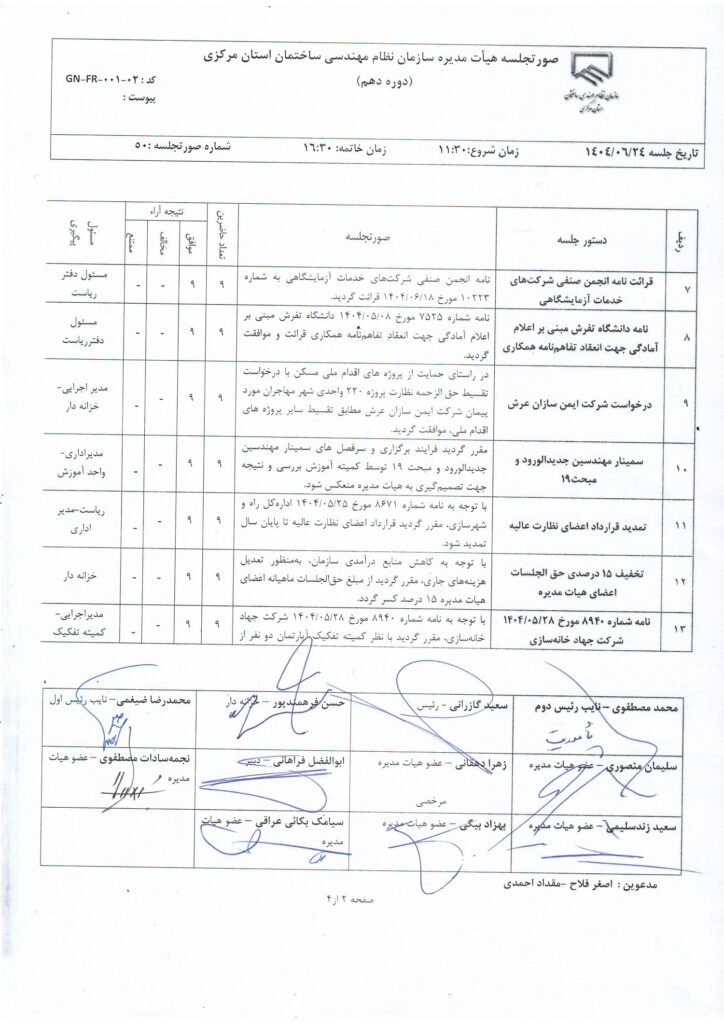 سازمان نظام مهندسی ساختمان
استان مرکزی
صورتجلسه هیأت مدیره سازمان نظام مهندسی ساختمان استان مرکزی
(دوره دهم)
کد : GN-FR-۰۰۱-۰۲
پیوست :
تاریخ جلسه ۱۴۰۴/۰۶/۲۴ زمان شروع:۱۱:۳۰ زمان خاتمه: ۱۶:۳۰ شماره صورتجلسه :۵۰
ردیف دستور جلسه صورتجلسه تعداد حاضرین نتیجه آراء مسئول پیگیری
موافق مخالف ممتنع
۷ قرائت نامه انجمن صنفی شرکت‌های
خدمات آزمایشگاهی
نامه انجمن صنفی شرکت‌های خدمات آزمایشگاهی به شماره
۱۰۲۲۳ مورخ ۱۴۰۴/۰۶/۱۸ قرائت گردید.
۹ ۹ - -
مسئول دفتر
ریاست
۸ نامه دانشگاه تفرش مبنی بر اعلام
آمادگی جهت انعقاد تفاهم‌نامه همکاری
نامه شماره ۷۵۲۵ مورخ ۱۴۰۴/۰۵/۰۸ دانشگاه تفرش مبنی بر
اعلام آمادگی جهت انعقاد تفاهم‌نامه همکاری قرائت و موافقت
گردید.
۹ ۹ - -
مسئول
دفترریاست
۹ درخواست شرکت ایمن سازان عرش
در راستای حمایت از پروژه های اقدام ملی مسکن با درخواست
تقسیط حق الزحمه نظارت پروژه ۲۲۰ واحدی شهر مهاجران مورد
پیمان شرکت ایمن سازان عرش مطابق تقسیط سایر پروژه های
اقدام ملی، موافقت گردید.
۹ ۹ - -
مدیر اجرایی-
خزانه دار
۱۰ سمینار مهندسین جدیدالورود و
مبحث۱۹
مقرر گردید فرایند برگزاری و سرفصل های سمینار مهندسین
جدیدالورود و مبحث ۱۹ توسط کمیته آموزش بررسی و نتیجه
جهت تصمیم‌گیری به هیات مدیره منعکس شود.
۹ ۹ - -
مدیراداری-
واحد آموزش
۱۱ تمدید قرارداد اعضای نظارت عالیه
با توجه به نامه شماره ۸۶۷۱ مورخ ۱۴۰۴/۰۵/۲۵ اداره‌کل راه و
شهرسازی، مقرر گردید قرارداد اعضای نظارت عالیه تا پایان سال
تمدید شود.
۹ ۹ - -
ریاست-مدیر
اداری
۱۲ تخفیف ۱۵ درصدی حق الجلسات
اعضای هیات مدیره
با توجه به کاهش منابع درآمدی سازمان، به‌منظور تعدیل
هزینه‌های جاری، مقرر گردید از مبلغ حق‌الجلسات ماهیانه اعضای
هیات مدیره ۱۵ درصد کسر گردد.
۹ ۹ - -
خزانه دار
۱۳ نامه شماره ۸۹۴۰ مورخ ۱۴۰۴/۰۵/۲۸
شرکت جهاد خانه‌سازی
با توجه به نامه شماره ۸۹۴۰ مورخ ۱۴۰۴/۰۵/۲۸ شرکت جهاد
خانه‌سازی، مقرر گردید با نظر کمیته تفکیک آپارتمان دو نفر از
۹ ۹ - -
مدیراجرایی-
کمیته تفکیک
محمد مصطفوی – نایب رئیس دوم
مأموریت
سعید گازرانی - رئیس
حسن فرهمندپور – خزانه دار
محمدرضا ضیغمی– نایب رئیس اول
سلیمان منصوری – عضو هیات مدیره
زهرا دهقانی – عضو هیات مدیره
مرخصی
ابوالفضل فراهانی – دبیر
نجمه‌سادات مصطفوی – عضو هیات
مدیره
سعید زندسلیمی – عضو هیات مدیره
بهزاد بیگی – عضو هیات مدیره
سیامک بکائی عراقی – عضو هیات
مدیره
مدعوین : اصغر فلاح –مقداد احمدی
صفحه ۲ از۴